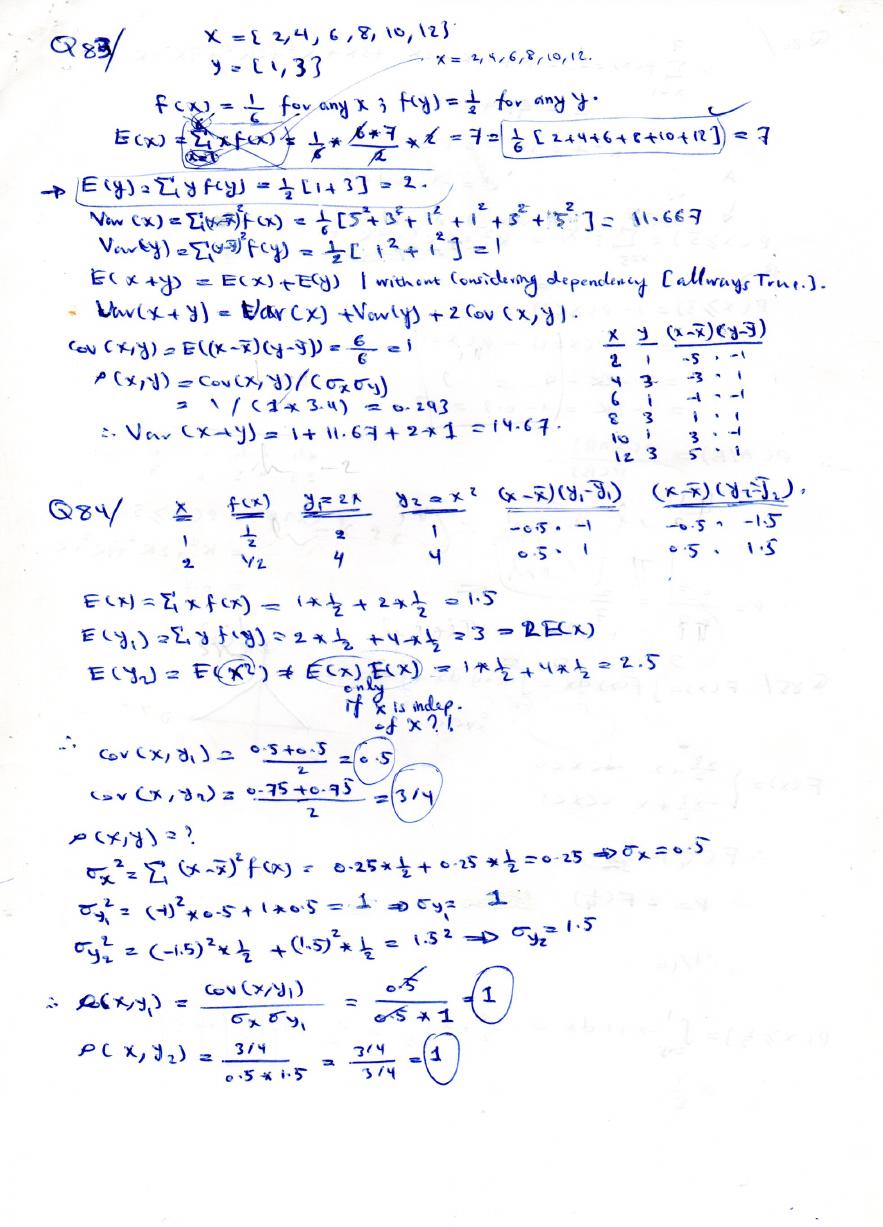 Q83/ X = { 2,4, 6, 8, 10, 12}
y = {1, 3}
x = 2,4,6,8,10,12.
f(x) = 1/6 for any x ; f(y) = 1/2 for any y.
E(x) = Σ x f(x) = 1/6 * 6*7/2 * 2 = 7 = 1/6 [ 2+4+6+8+10+12] = 7
→ E(y) = Σ y f(y) = 1/2 [1+3] = 2.
Var (x) = Σ(x-x̄)² f(x) = 1/6 [5²+3²+1²+1²+3²+5²] = 11.667
Var(y) = Σ(y-ȳ)² f(y) = 1/2 [1²+1²] = 1
E(x+y) = E(x)+E(y) | without Considering dependency [allways True.].
Var(x+y) = Var(x) + Var(y) + 2 Cov (x,y).
Cov (x,y) = E((x-x̄)(y-ȳ)) = 6/6 = 1
ρ(x,y) = Cov(x,y)/(σx σy)
= 1/(1*3.4) = 0.293
∴ Var (x+y) = 1 + 11.67 + 2*1 = 14.67.
x y (x-x̄)(y-ȳ)
2 1 -5 . -1
4 3 -3 . 1
6 1 -1 . -1
8 3 1 . 1
10 1 3 . -1
12 3 5 . 1
Q84/ x f(x) y₁=2x y₂=x² (x-x̄)(y₁-ȳ₁) (x-x̄)(y₂-ȳ₂).
1 1/2 2 1 -0.5 . -1 -0.5 . -1.5
2 1/2 4 4 0.5 . 1 0.5 . 1.5
E(x) = Σ x f(x) = 1*1/2 + 2*1/2 = 1.5
E(y₁) = Σ y f(y) = 2*1/2 + 4*1/2 = 3 = 2E(x)
E(y₂) = E(x²) ≠ E(x) E(x) = 1*1/2 + 4*1/2 = 2.5
only
if x is indep.
of x ?!
∴ cov(x,y₁) = 0.5+0.5/2 = 0.5
cov(x,y₂) = 0.75+0.75/2 = 3/4
ρ(x,y) = ?
σx² = Σ (x-x̄)² f(x) = 0.25*1/2 + 0.25*1/2 = 0.25 ⇒ σx = 0.5
σy₁² = (-1)²*0.5 + 1*0.5 = 1 ⇒ σy₁ = 1
σy₂² = (-1.5)²*1/2 + (1.5)²*1/2 = 1.5² ⇒ σy₂ = 1.5
∴ ρ(x,y₁) = cov(x,y₁)/σx σy₁ = 0.5/0.5*1 = 1
ρ(x,y₂) = 3/4/0.5*1.5 = 3/4/3/4 = 1